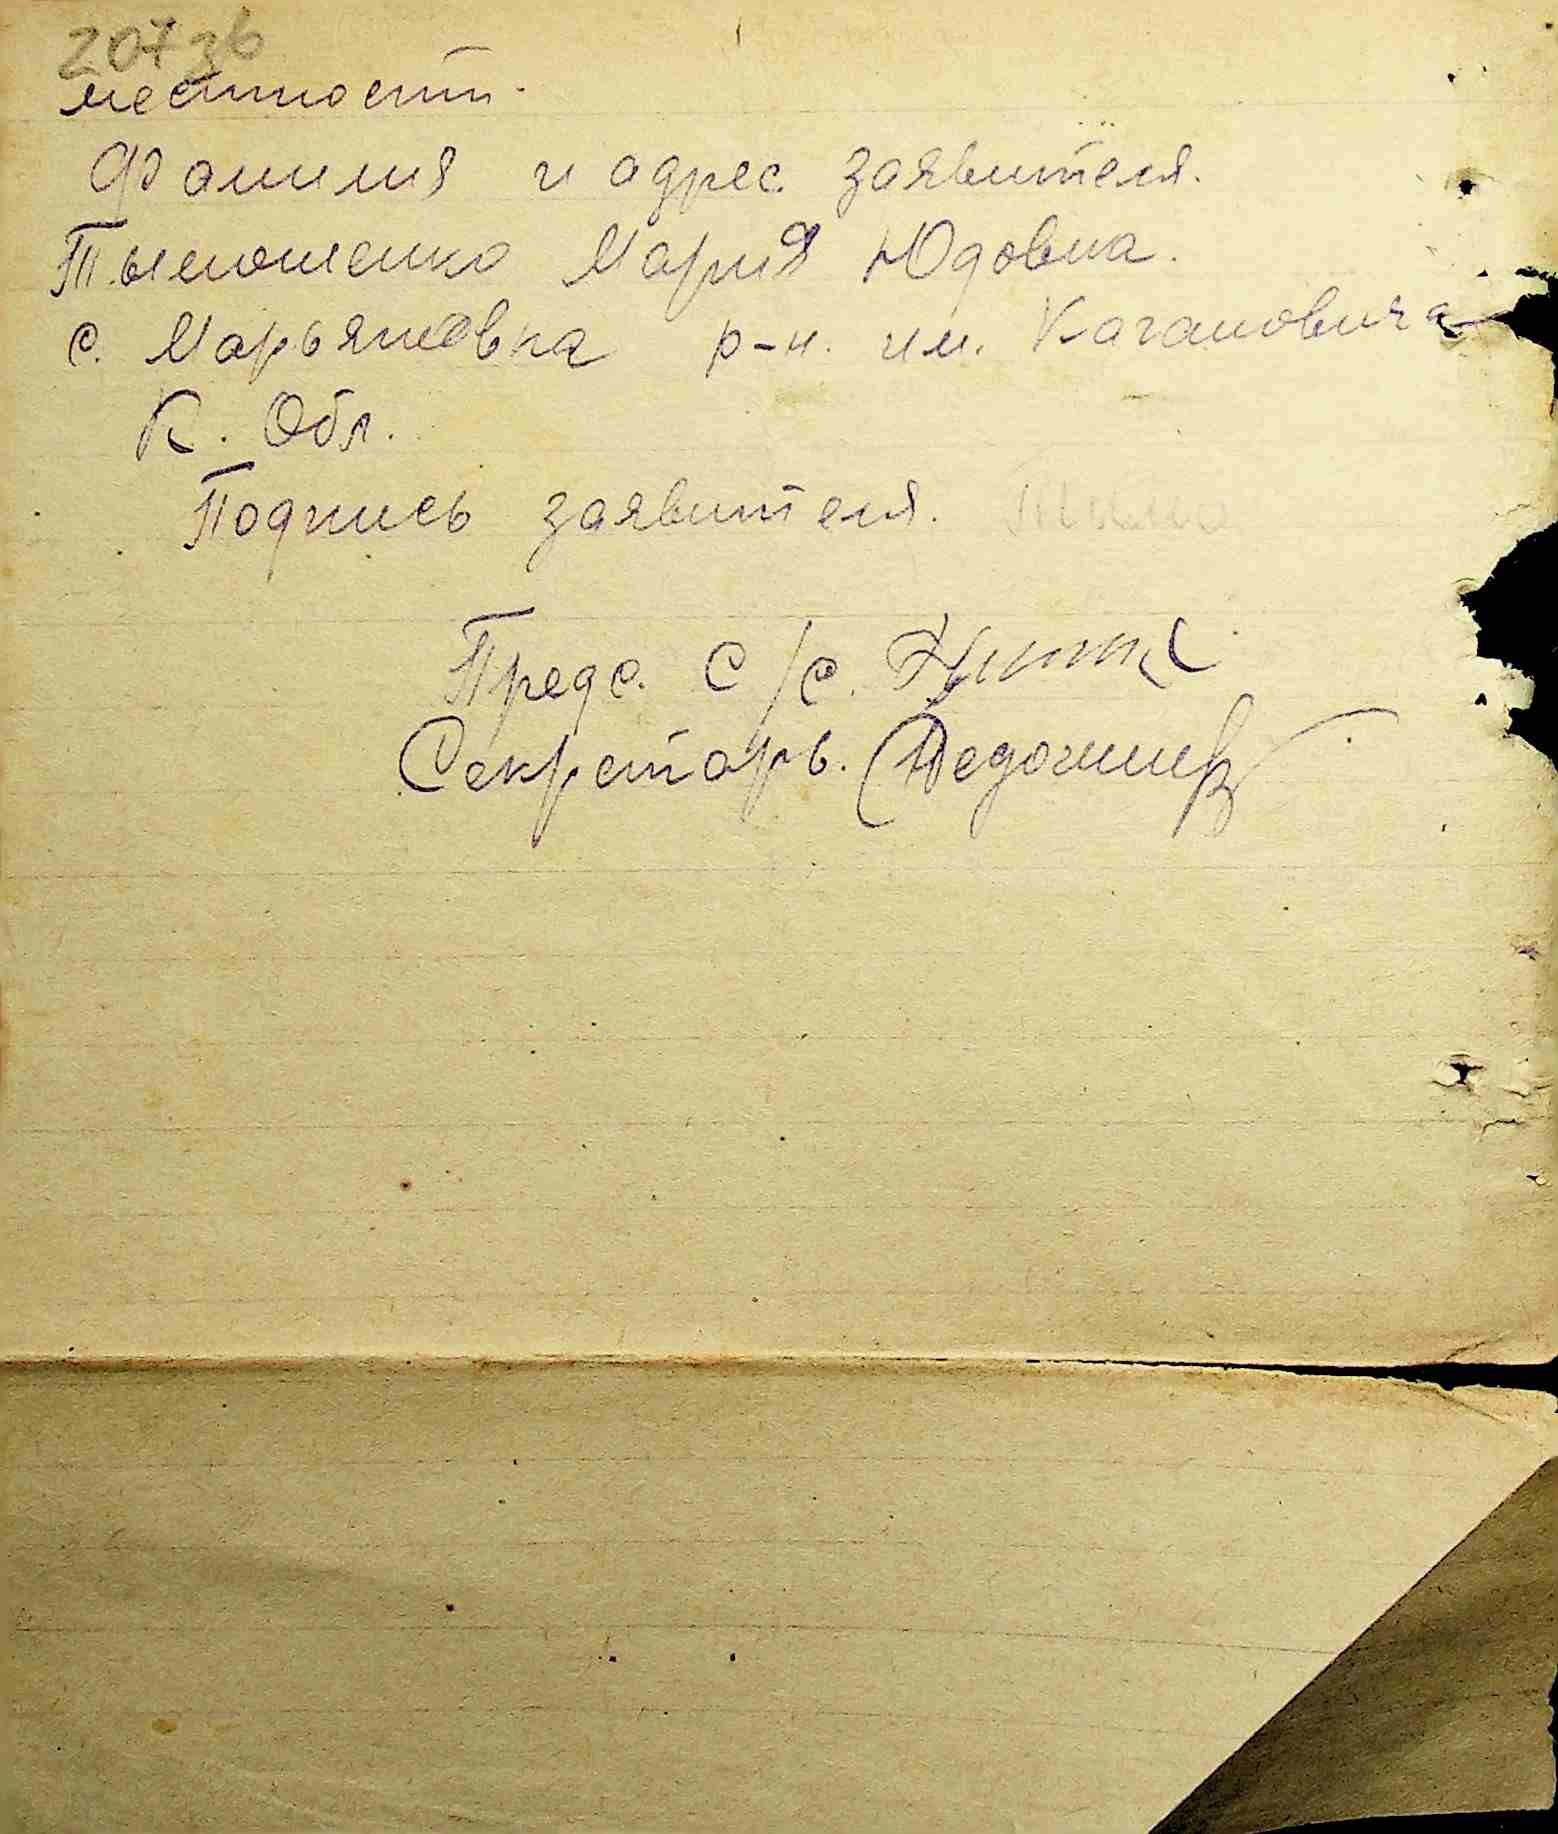 207 зв
местности.
Фамилия и адрес заявителя.
Тымошенко Мария Юдовна.
с. Марьяновка р-н. им. Кагановича
К. Обл.
Подпись заявителя. Тимо
Предс. С/с.
Секретарь.